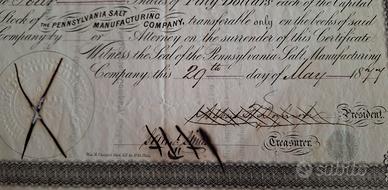 Shares of Fifty Dollars each of the Capital
Stock of THE PENNSYLVANIA SALT MANUFACTURING COMPANY, transferable only on the books of said
Company by Attorney on the surrender of this Certificate
Witness the Seal of the Pennsylvania Salt Manufacturing
Company this 29th day of May 1877
President.
Treasurer.
subito